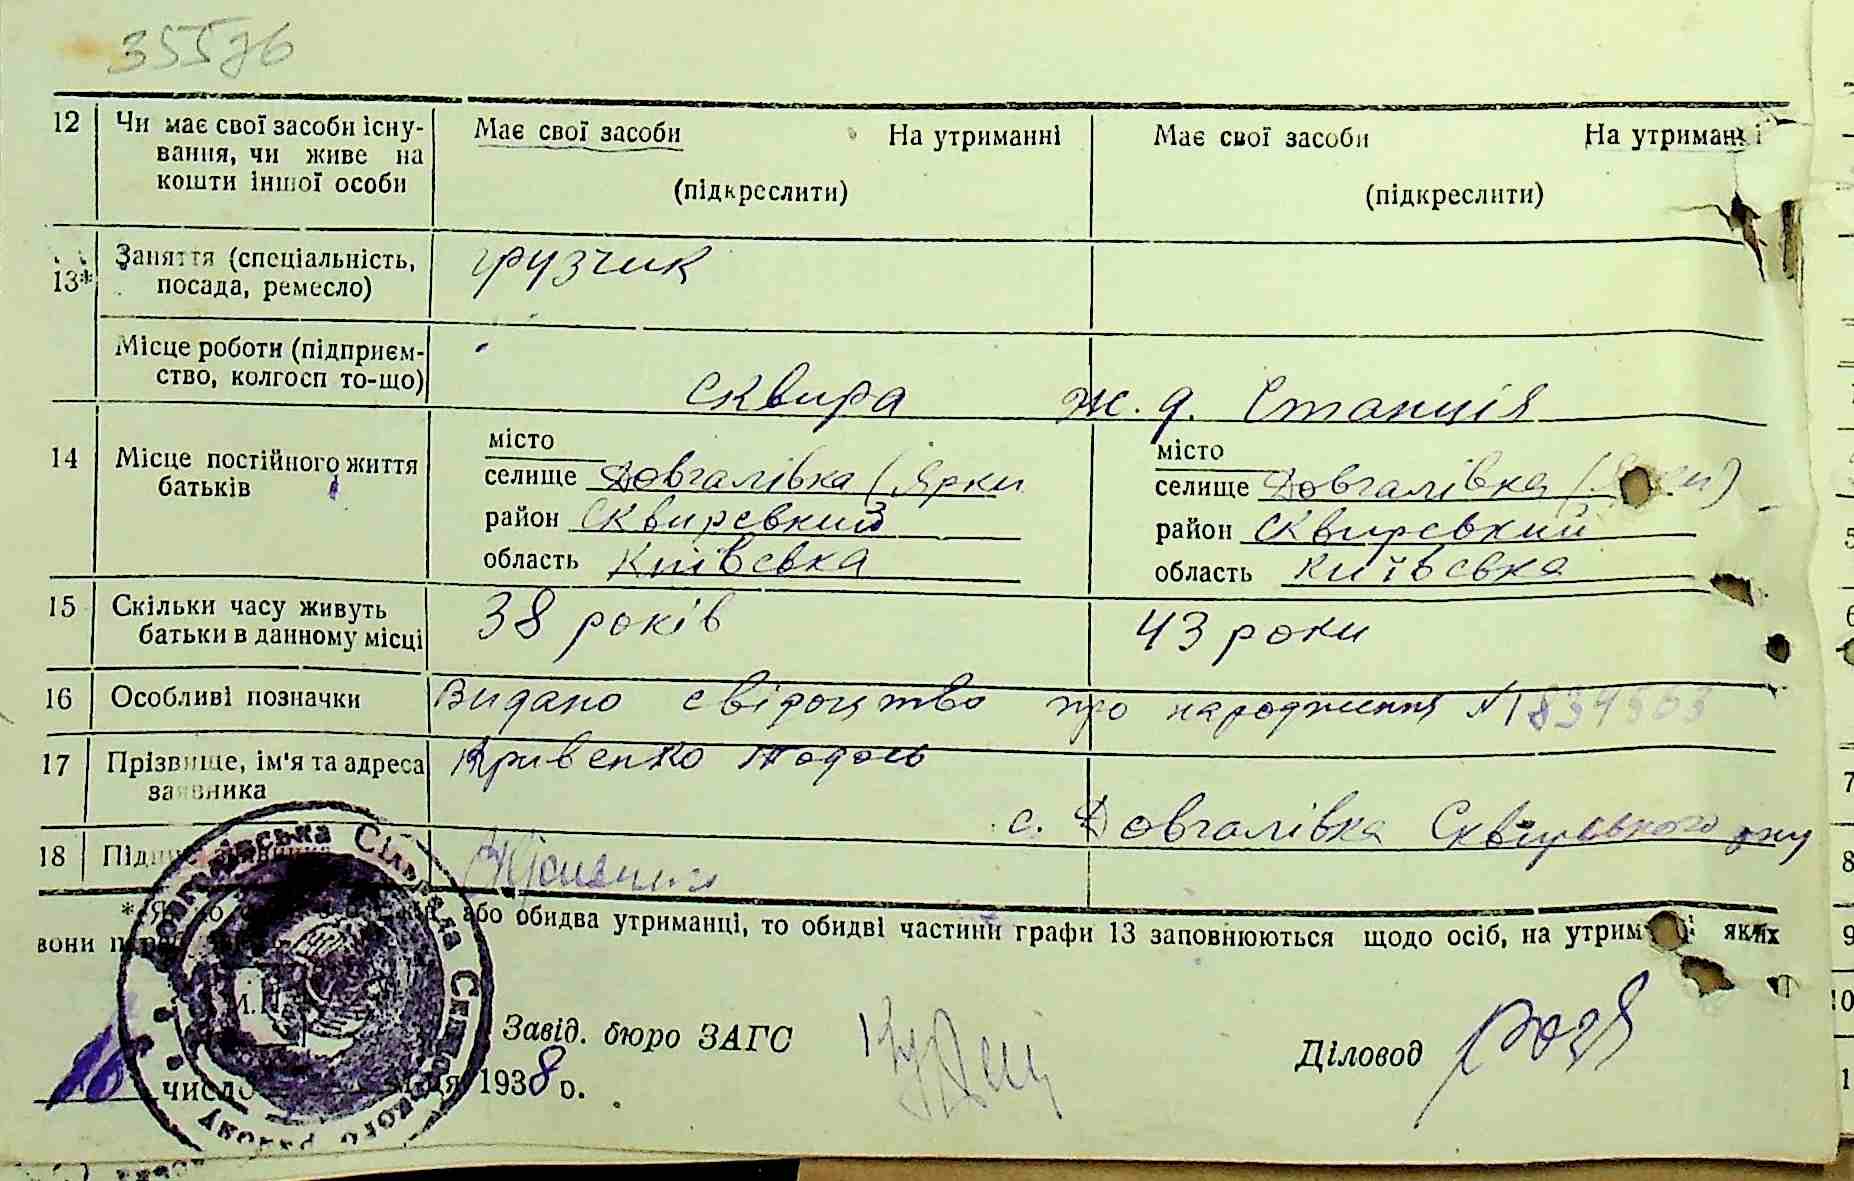 35576
12 Чи має свої засоби існу-
вання, чи живе на
кошти іншої особи
Має свої засоби На утриманні
(підкреслити)
Має свої засоби На утриманні
(підкреслити)
13* Заняття (спеціальність,
посада, ремесло)
грузчик
Місце роботи (підприєм-
ство, колгосп то-що)
Сквира ж. д. Станція
14 Місце постійного життя
батьків
місто
селище Довгалівка (Ярки
район Сквирський
область Київська
місто
селище Довгалівка
район Сквирський
область Київська
15 Скільки часу живуть
батьки в данному місці
38 років
43 роки
16 Особливі позначки
Видано свідоцтво про народження №
17 Прізвище, ім'я та адреса
заявника
Кривенко Тодось
с. Довгалівка Сквирського р-ну
18 Підпис заявника
або обидва утриманці, то обидві частини графи 13 заповнюються щодо осіб, на утриманні яких
вони
М.П.
Завід. бюро ЗАГС
Діловод
число 1938 р.
Сільрада
району